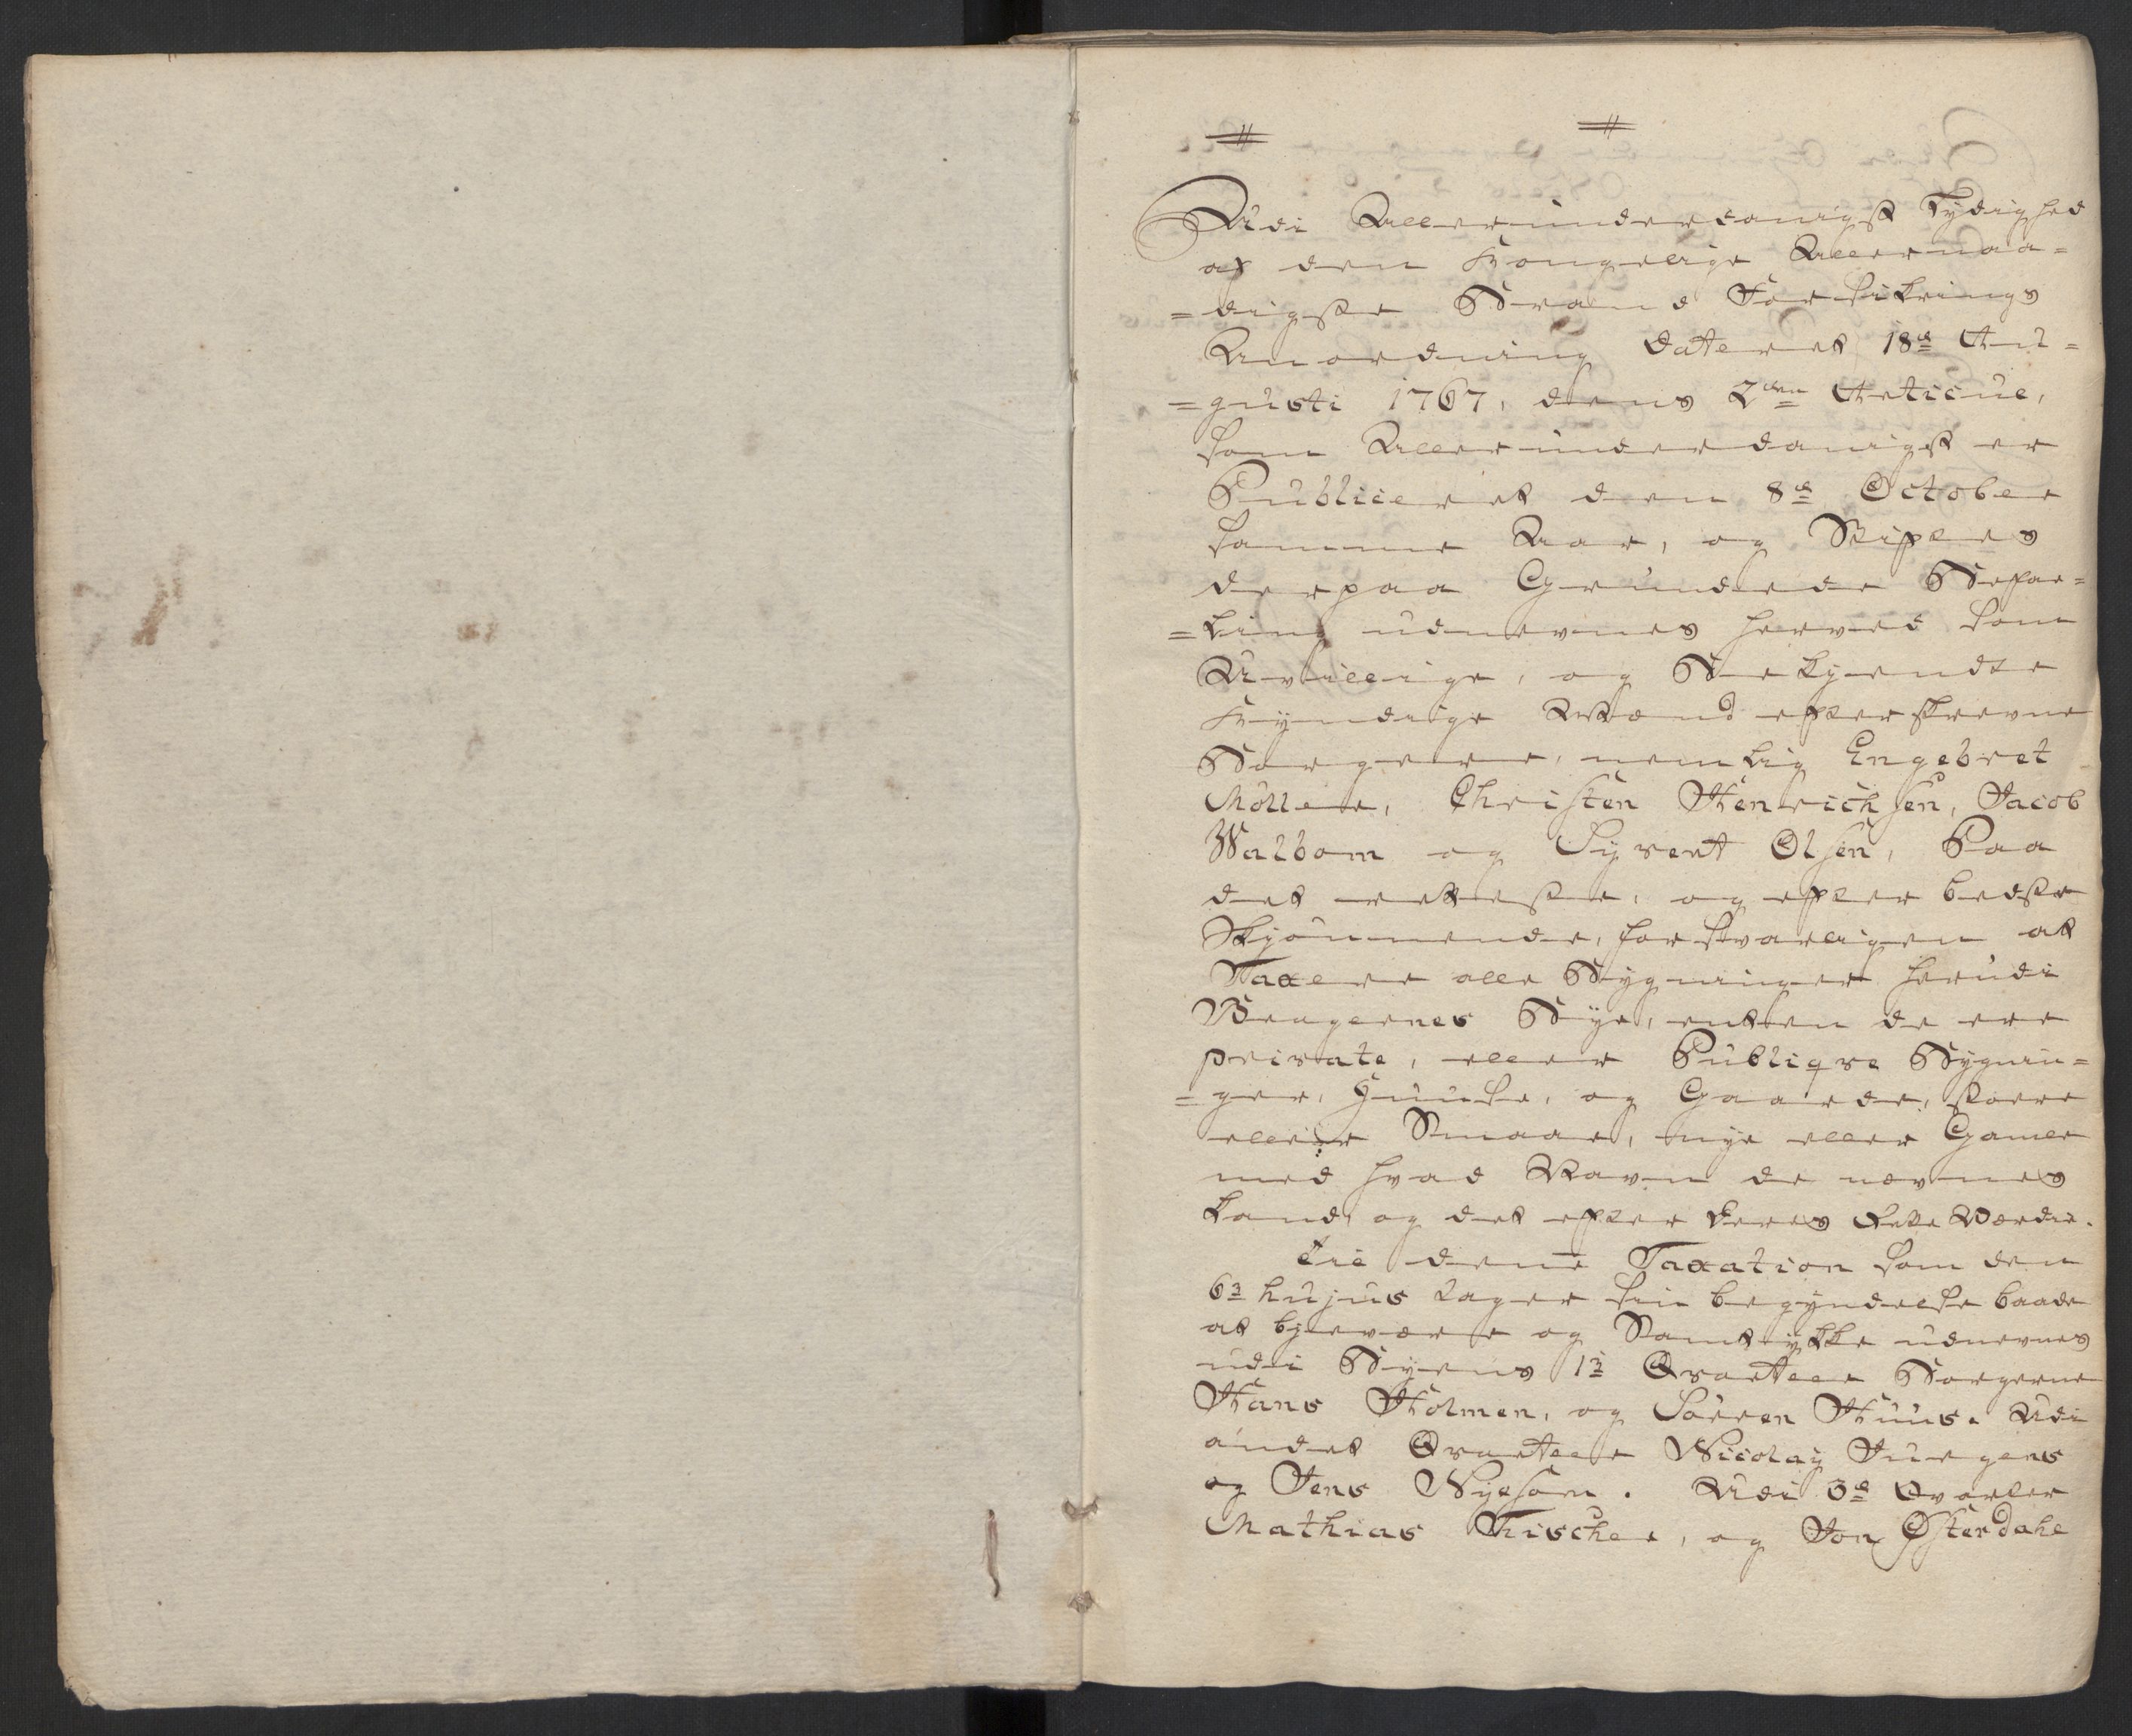 Udi Allerunderdanigst Lydighed
af den Kongelige Allernaa=
=digste Brand Forsikrings
Anordning dateret 18de Au=
=gusti 1767, dens 2den Articul,
som Allerunderdanigst er
Publiceret den 8de October
samme Aar, og Stiftes
derpaa Grundede Befa=
=ling udnevnes herved som
Uvillige, og Bekjendte
Kyndige Mænd efterskrevne
Borgere, nemlig Engebret
Möller, Christen Henrichsen, Jacob
Walbom og Syvert Olsen, Paa
det retteste, og efter bedste
Skjönnende, forsvarligen at
Taxere alle Bygninger herudi
Bragernes Bye, enten de ere
private, eller Publiqve Bygnin=
=ger, Huuse, og Gaarde, stoere
eller Smaae, nye eller Gamle
med hvad Navn de nævnes
kand, og det efter deres rette Værdie.
Til denne Taxation som den
6te hujus tager sin begyndelse baade
at bievære og Samtykke udnevnes
udi Byens 1te Qvarteer Borgerne
Hans Holmen, og Sören Huus. Udi
andet Qvarteer Nicolay Jurgens
og Jens Nyesom. Udi 3de Qvarter
Mathias Fischer, og Jon Østerdahl